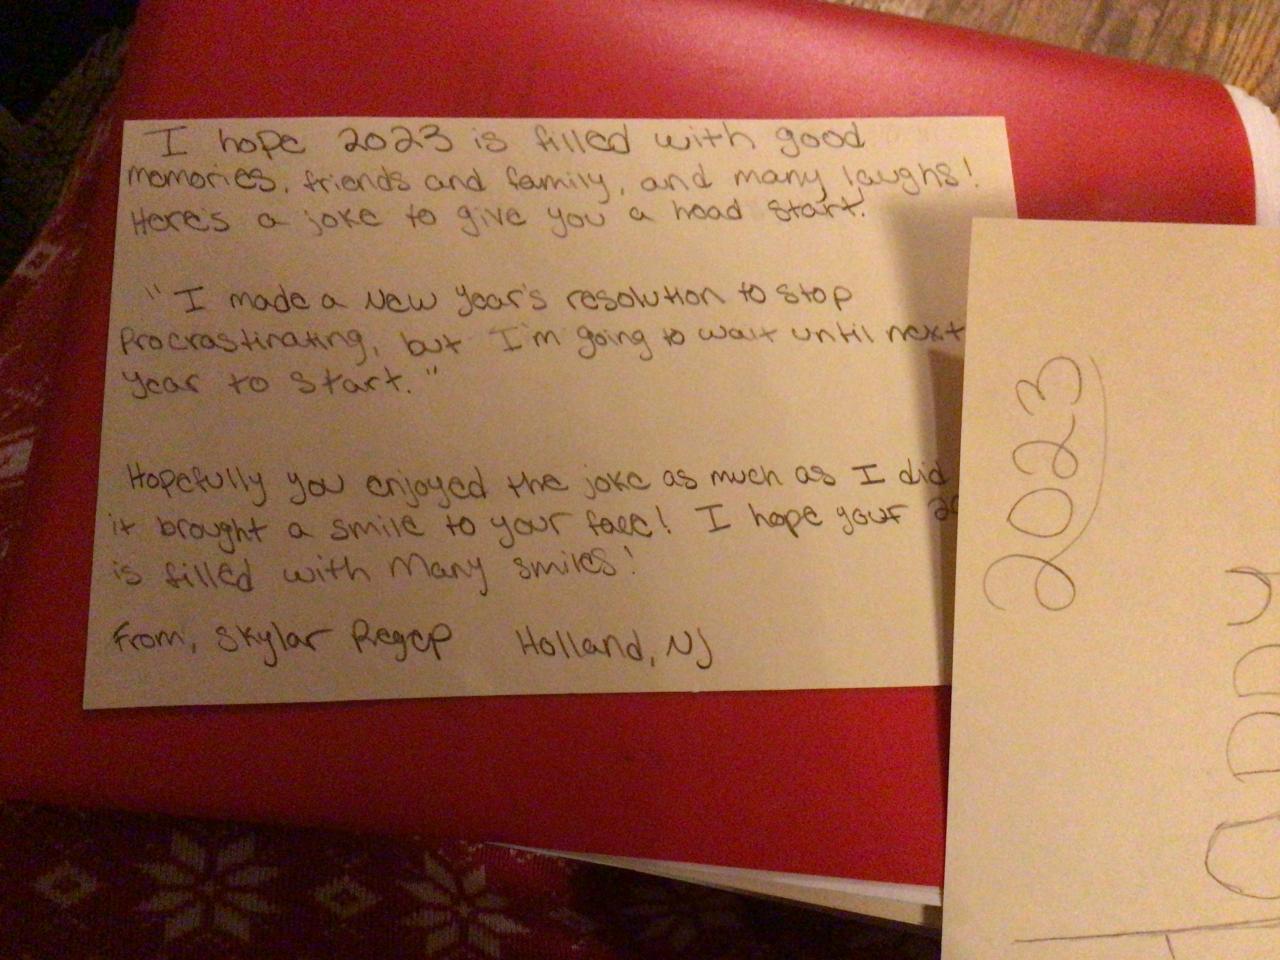 I hope 2023 is filled with good
memories, friends and family, and many laughs!
Here's a joke to give you a head start.
"I made a New Year's resolution to stop
Procrastinating, but I'm going to wait until next
year to start."
Hopefully you enjoyed the joke as much as I did
it brought a smile to your face! I hope your
is filled with Many smiles!
From, Skylar Regep Holland, NJ
2023
Happy